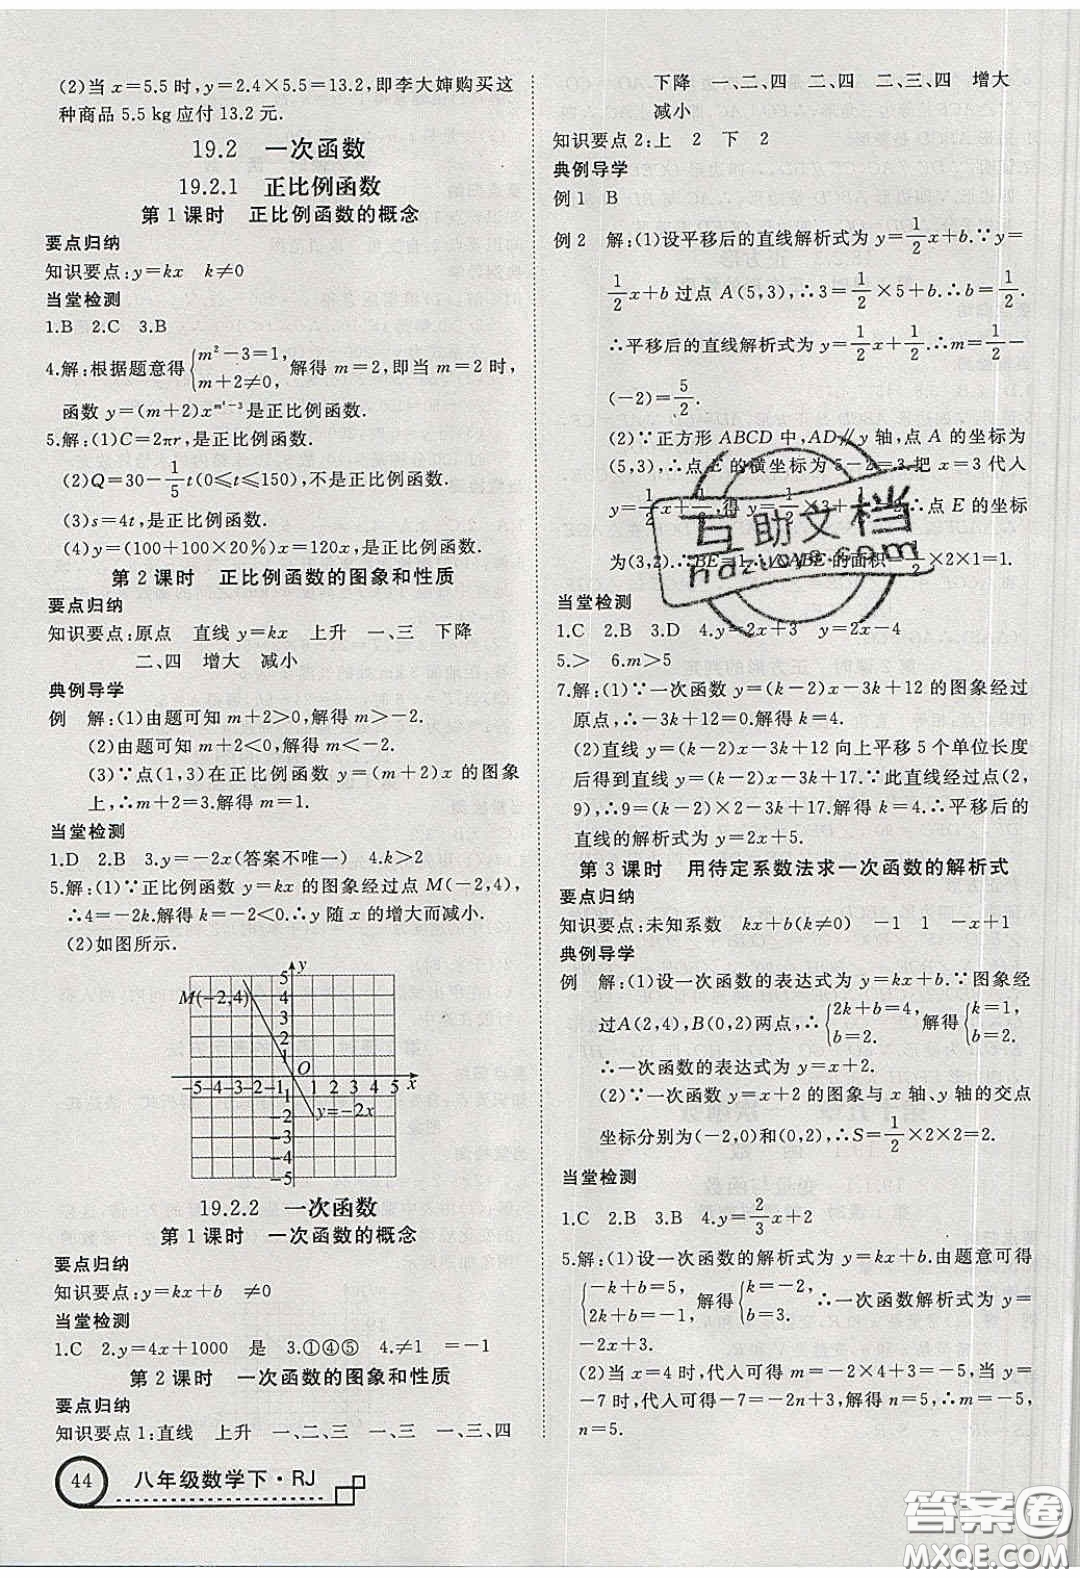 (2)当 x=5.5 时,y=2.4×5.5=13.2,即李大婶购买这
种商品 5.5 kg 应付 13.2 元.
19.2 一次函数
19.2.1 正比例函数
第 1 课时 正比例函数的概念
要点归纳
知识要点:y=kx k≠0
当堂检测
1.B 2.C 3.B
4.解:根据题意得{m²-3=1, m+2≠0, 解得 m=2,即当 m=2 时,
函数 y=(m+2)x^(m²-3)是正比例函数.
5.解:(1)C=2πr,是正比例函数.
(2)Q=30-1/5t(0≤t≤150),不是正比例函数.
(3)s=4t,是正比例函数.
(4)y=(100+100×20%)x=120x,是正比例函数.
第 2 课时 正比例函数的图象和性质
要点归纳
知识要点:原点 直线 y=kx 上升 一、三 下降
二、四 增大 减小
典例导学
例 解:(1)由题可知 m+2>0,解得 m>-2.
(2)由题可知 m+2<0,解得 m<-2.
(3)∵点(1,3)在正比例函数 y=(m+2)x 的图象
上,∴m+2=3.解得 m=1.
当堂检测
1.D 2.B 3.y=-2x(答案不唯一) 4.k>2
5.解:(1)∵正比例函数 y=kx 的图象经过点 M(-2,4),
∴4=-2k.解得 k=-2.∴y 随 x 的增大而减小.
(2)如图所示.
y
5
M(-2,4) 4
3
2
1
O
-5-4-3-2-1 1 2 3 4 5 x
-1
-2 y=-2x
-3
-4
-5
19.2.2 一次函数
第 1 课时 一次函数的概念
要点归纳
知识要点:y=kx+b ≠0
当堂检测
1.C 2.y=4x+1000 是 3.①④⑤ 4.≠1 =-1
第 2 课时 一次函数的图象和性质
要点归纳
知识要点 1:直线 上升 一、二、三 一、三 一、三、四
44 八年级数学下·RJ
下降 一、二、四 二、四 二、三、四 增大
减小
知识要点 2:上 2 下 2
典例导学
例 1 B
例 2 解:(1)设平移后的直线解析式为 y=1/2x+b.∵y=
1/2x+b 过点 A(5,3),∴3=1/2×5+b.∴b=1/2.
∴平移后的直线解析式为 y=1/2x+1/2.∴m=1/2-
(-2)=5/2.
(2)∵正方形 ABCD 中,AD∥y 轴,点 A 的坐标为
(5,3),∴点 E 的横坐标为 5-2=3.把 x=3 代入
y=1/2x+1/2,得 y=1/2×3+1/2=2.∴点 E 的坐标
为(3,2).∴BE=1.∴△ABE 的面积=1/2×2×1=1.
当堂检测
1.C 2.B 3.D 4.y=2x+3 y=2x-4
5.> 6.m>5
7.解:(1)∵一次函数 y=(k-2)x-3k+12 的图象经过
原点,∴-3k+12=0.解得 k=4.
(2)直线 y=(k-2)x-3k+12 向上平移 5 个单位长度
后得到直线 y=(k-2)x-3k+17.∵此直线经过点(2,
9),∴9=(k-2)×2-3k+17.解得 k=4.∴平移后的
直线的解析式为 y=2x+5.
第 3 课时 用待定系数法求一次函数的解析式
要点归纳
知识要点:未知系数 kx+b(k≠0) -1 1 -x+1
典例导学
例 解:(1)设一次函数的表达式为 y=kx+b.∵图象经
过 A(2,4),B(0,2)两点,∴{2k+b=4, b=2. 解得{k=1, b=2.
∴一次函数的表达式为 y=x+2.
(2)∵一次函数 y=x+2 的图象与 x 轴、y 轴的交点
坐标分别为(-2,0)和(0,2),∴S=1/2×2×2=2.
当堂检测
1.C 2.B 3.B 4.y=2/3x+2
5.解:(1)设一次函数的解析式为 y=kx+b.由题意可得
{-k+b=5, 2k+b=-1, 解得{k=-2, b=3. ∴一次函数解析式为 y=
-2x+3.
(2)当 x=4 时,代入可得 m=-2×4+3=-5,当 y=
-7 时,代入可得-7=-2n+3,解得 n=5,∴m=-5,
n=5.
互助文档
hdzuoye.com
答案圈
MXQE.COM